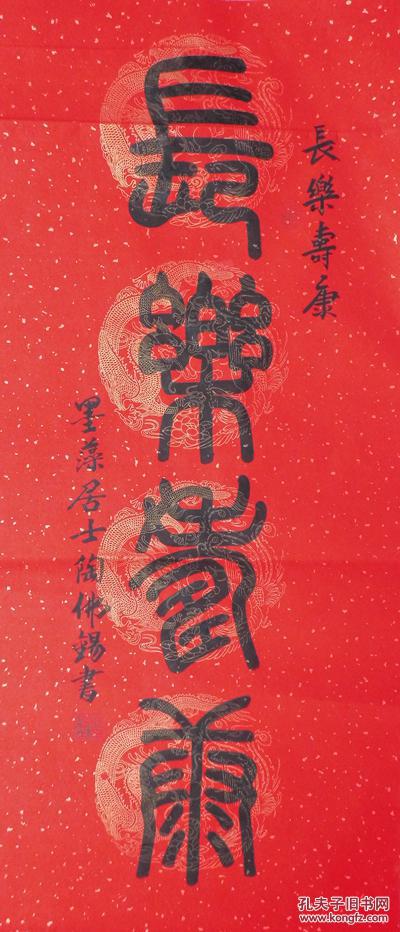 長樂壽康
長樂壽康
墨藻居士陶佛錫書
孔夫子旧书网
www.kongfz.com